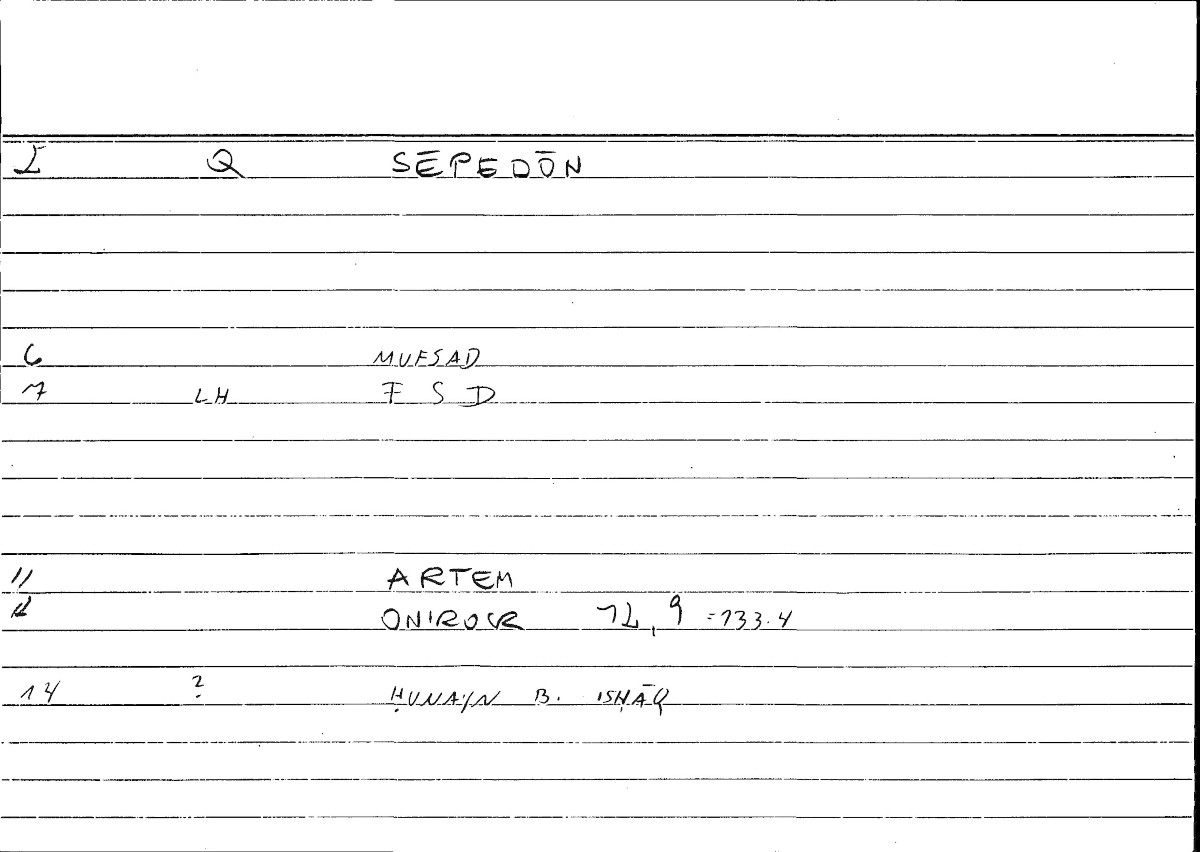 Σ Q SĒPEDŌN
6 MUFSAD
7 LH F S D
11 ARTEM
12 ONIROCR 12,9 =133.4
14 ? ḤUNAYN B. ISḤĀQ